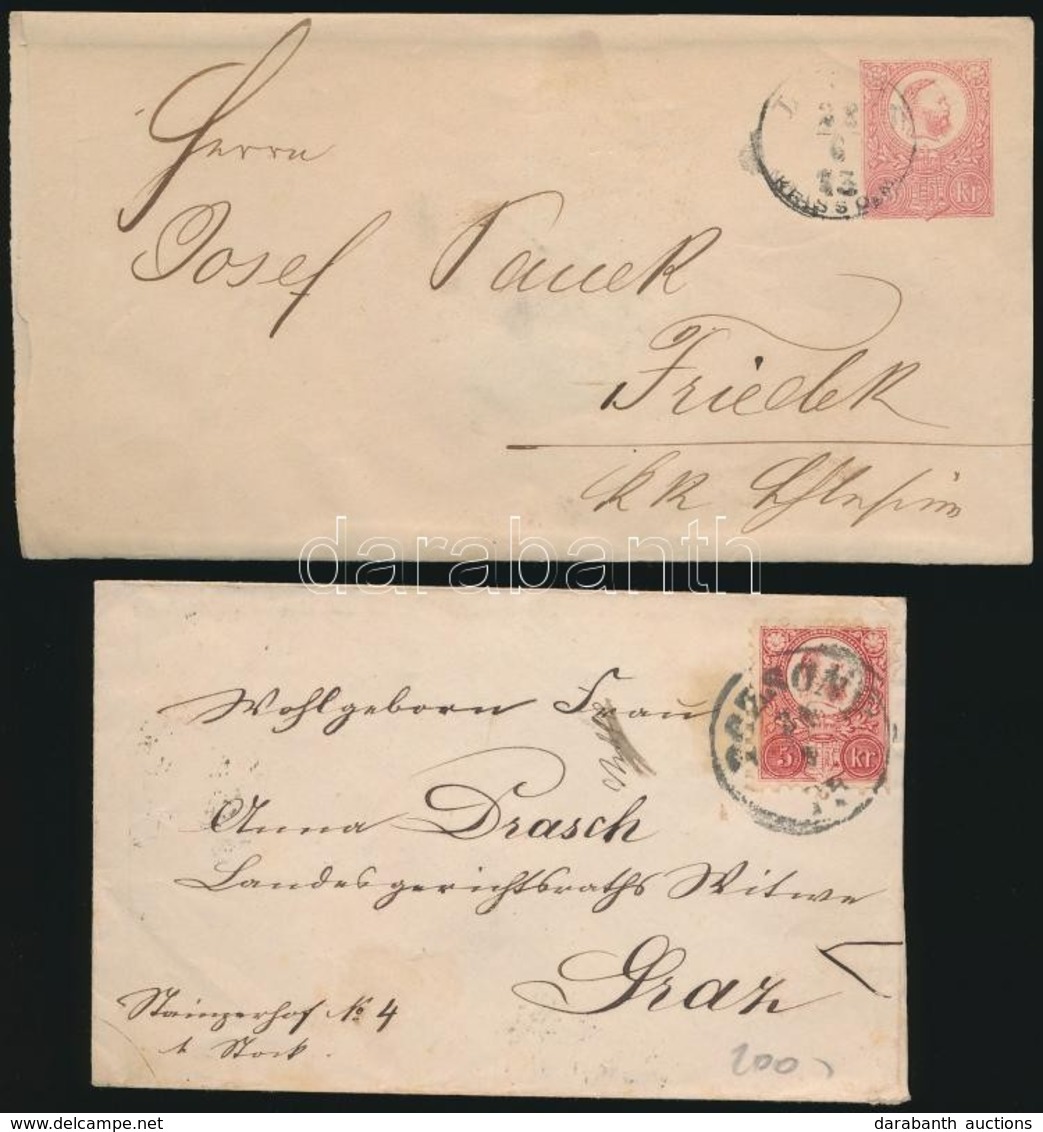 Herrn
Josef Panek
Friedek
kk Schlesien
Kr
darabanth
Wohlgeborn Frau
Anna Drasch
Landesgerichtsraths Witwe
Graz
Stainzerhof No 4
1 Stock.
POZSONY
5 Kr
200
delcampe.net
darabanth auctions